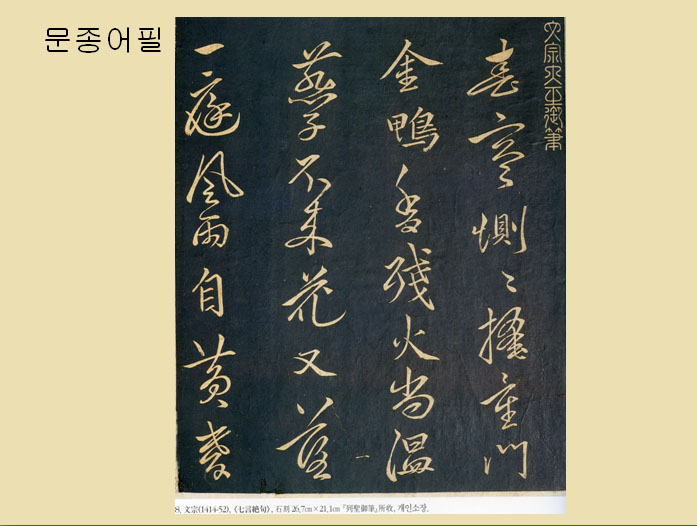 문종어필
文宗大王御筆
春寒惻〻掩重門
金鴨香殘火尙溫
燕子不來花又落
一庭風雨自黃昏
8. 文宗(1414-52), 《七言絶句》, 石刻 26.7cm×21.1cm 『列聖御筆』所收, 개인소장.